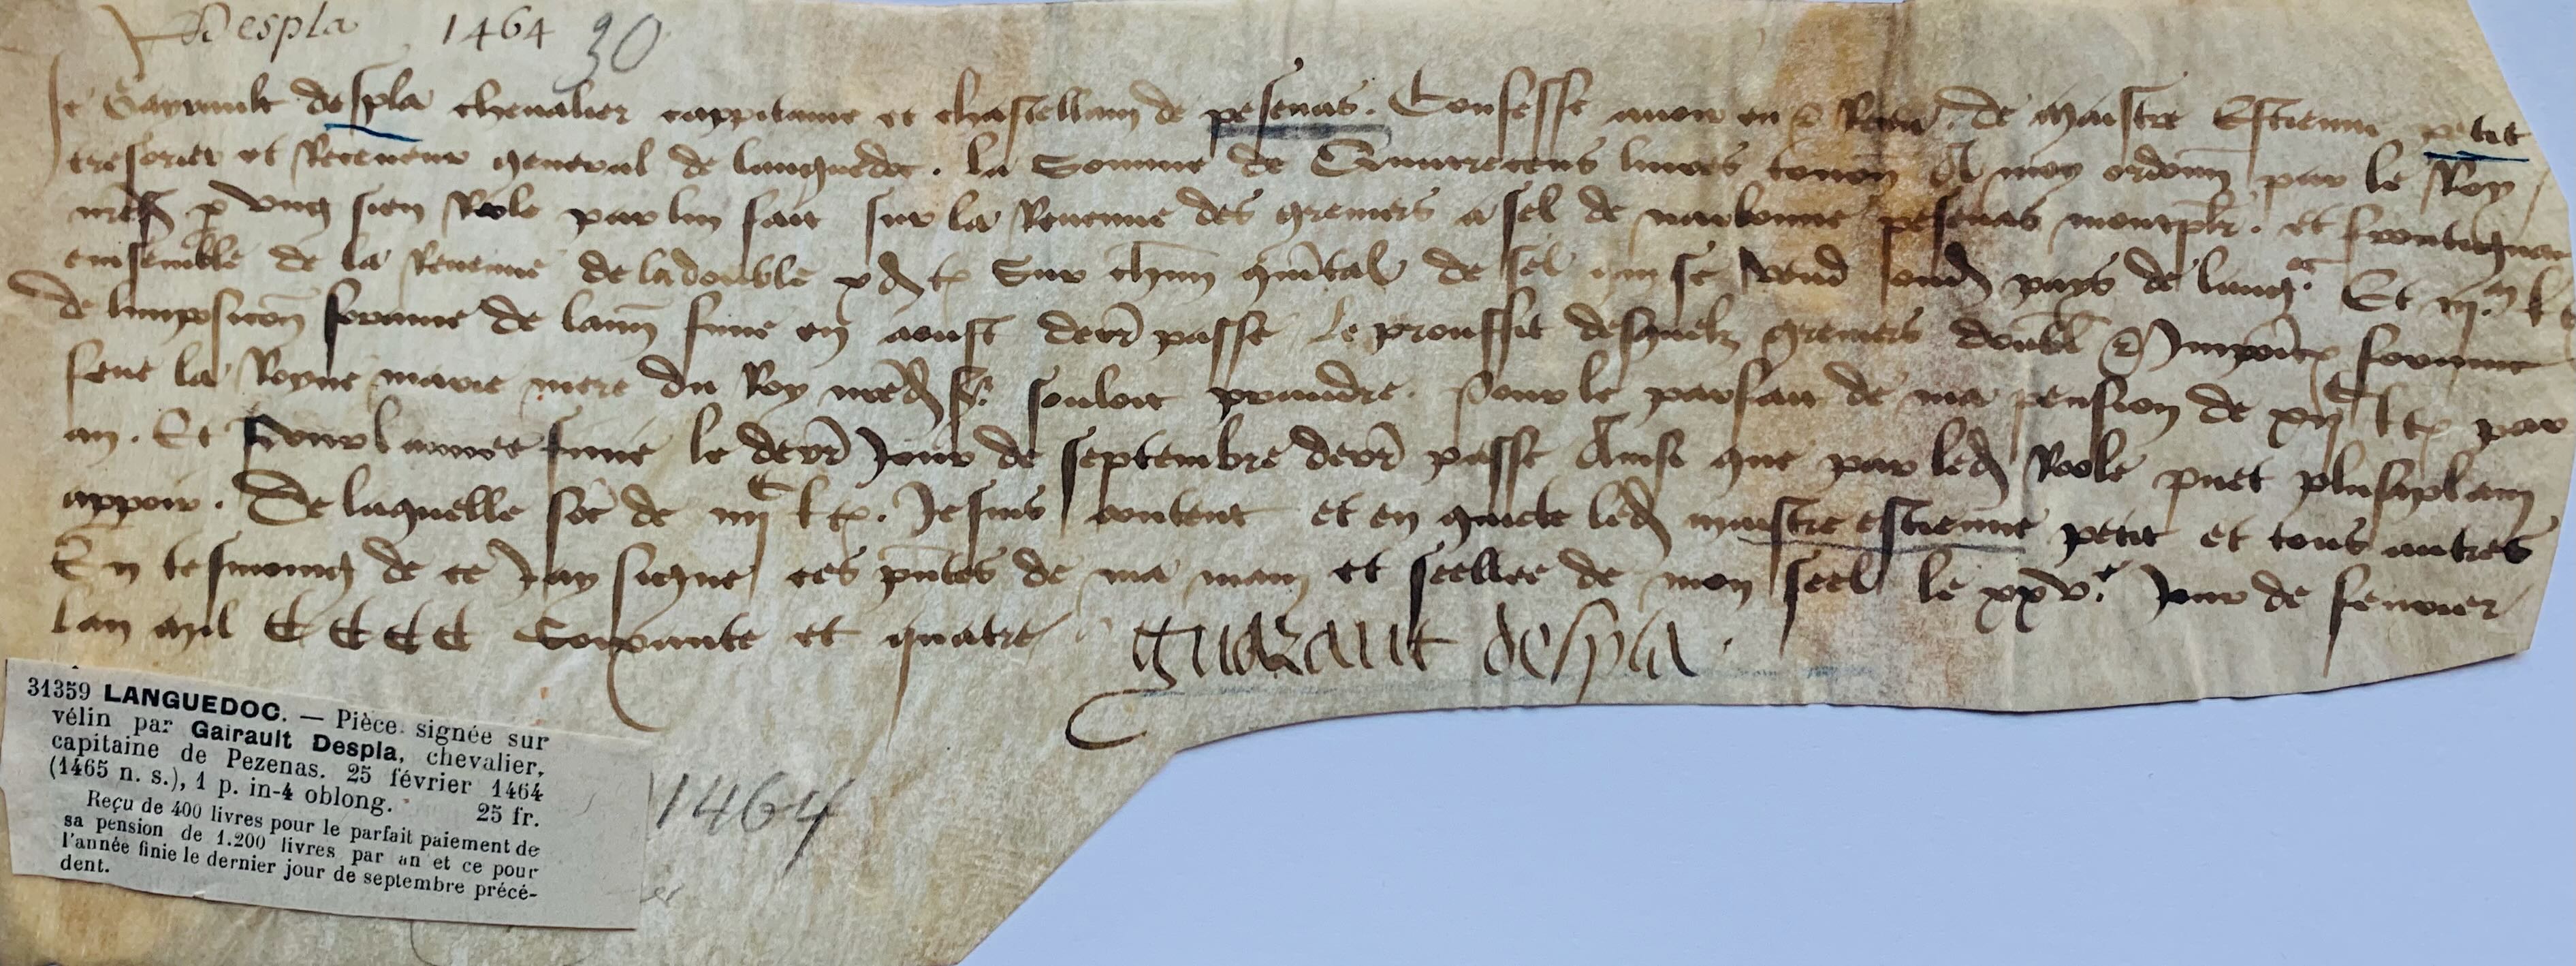 Despla 1464 30
Je Gayrault despla chevalier cappitaine et chastellain de pesenas. Confesse avoir eu & Receu. de maistre Estienne petit
tresorier et Receveur general de languedoc. la Somme de Quatrecens livres tourn A moy ordonn par le Roy
nred s p ung sien Role par lui fait sur la Revenue des greniers a sel de narbonne pesenas montplr. et frontignan
ensemble de la Revenue de la double x d t Sur chun quintal de sel qui se vend oud pays de lang. Et
de limposicon foraine de lann finie en aoust derr passe le prouffit desquelz greniers double & Imposicon foraine
feue la Royne marie mere du Roy nred s souloit prandre. Pour le parfait de ma pension de xij c l t par
an. Et pour lannee finie le derr Jour de septembre derr passe Ainsi que par led Role puet plusaplain
apparoir. De laquelle soe de iiij c l t. Je suis content et en quicte led maistre estienne petit et tous autres
En tesmoing de ce Jay signe ces pntes de ma main et seellee de mon seel le xxv.e Jour de fevrier
lan mil CCCC Soixante et quatre guarault despla.
31359 LANGUEDOC. — Pièce signée sur
vélin par Gairault Despla, chevalier,
capitaine de Pezenas. 25 février 1464
(1465 n. s.), 1 p. in-4 oblong. 25 fr.
Reçu de 400 livres pour le parfait paiement de
sa pension de 1.200 livres par an et ce pour
l'année finie le dernier jour de septembre précé-
dent.
1464